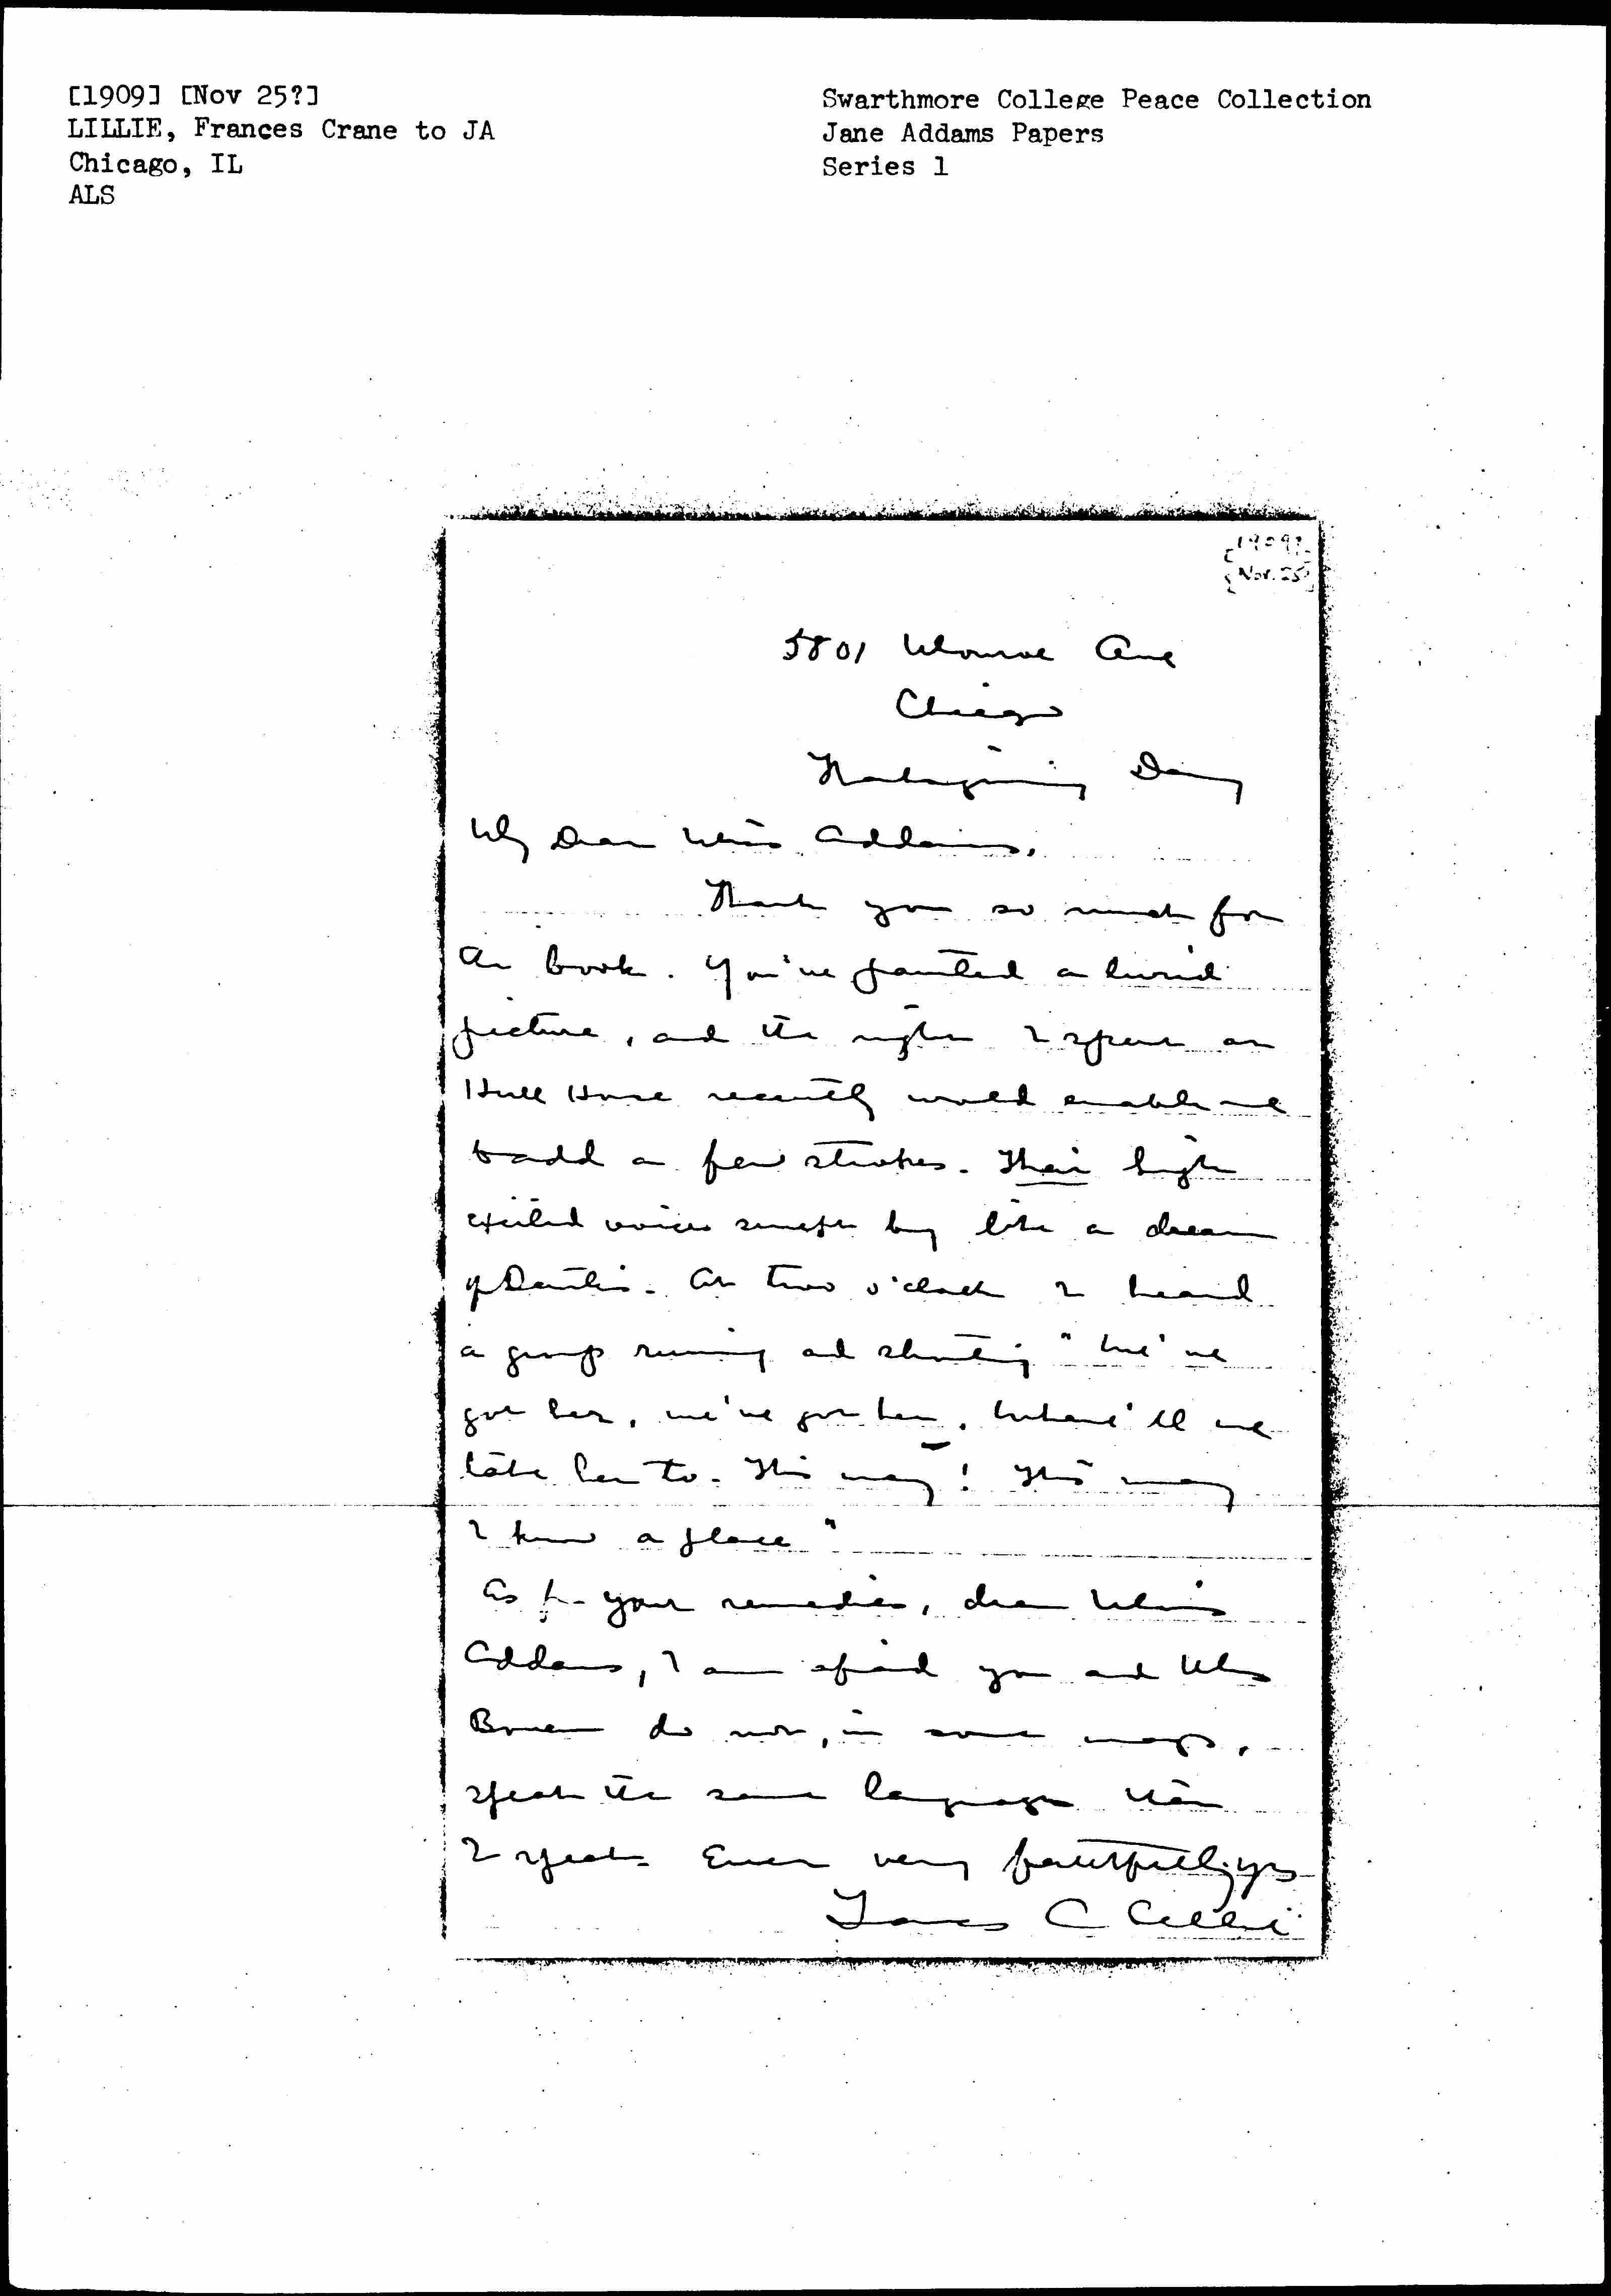 [1909] [Nov 25?]
LILLIE, Frances Crane to JA
Chicago, IL
ALS
Swarthmore College Peace Collection
Jane Addams Papers
Series 1
[1909?]
[Nov. 25?]
5801 Monroe Ave
Chicago
Thanksgiving Day
My Dear Miss Addams,
Thank you so much for
the book. You've painted a lurid
picture, and the night I spent at
Hull House recently would enable me
to add a few strokes. Their high
excited voices swept by like a dream
of Dante's. At two o'clock I heard
a group running and shouting "We've
got her, we've got her, where'll we
take her to. This way! This way
I know a place"
As for your remedies, dear Miss
Addams, I am afraid you and Mrs
Bowen do not, in some ways,
speak the same language that
I speak. Ever very faithfully yrs
Frances C Lillie